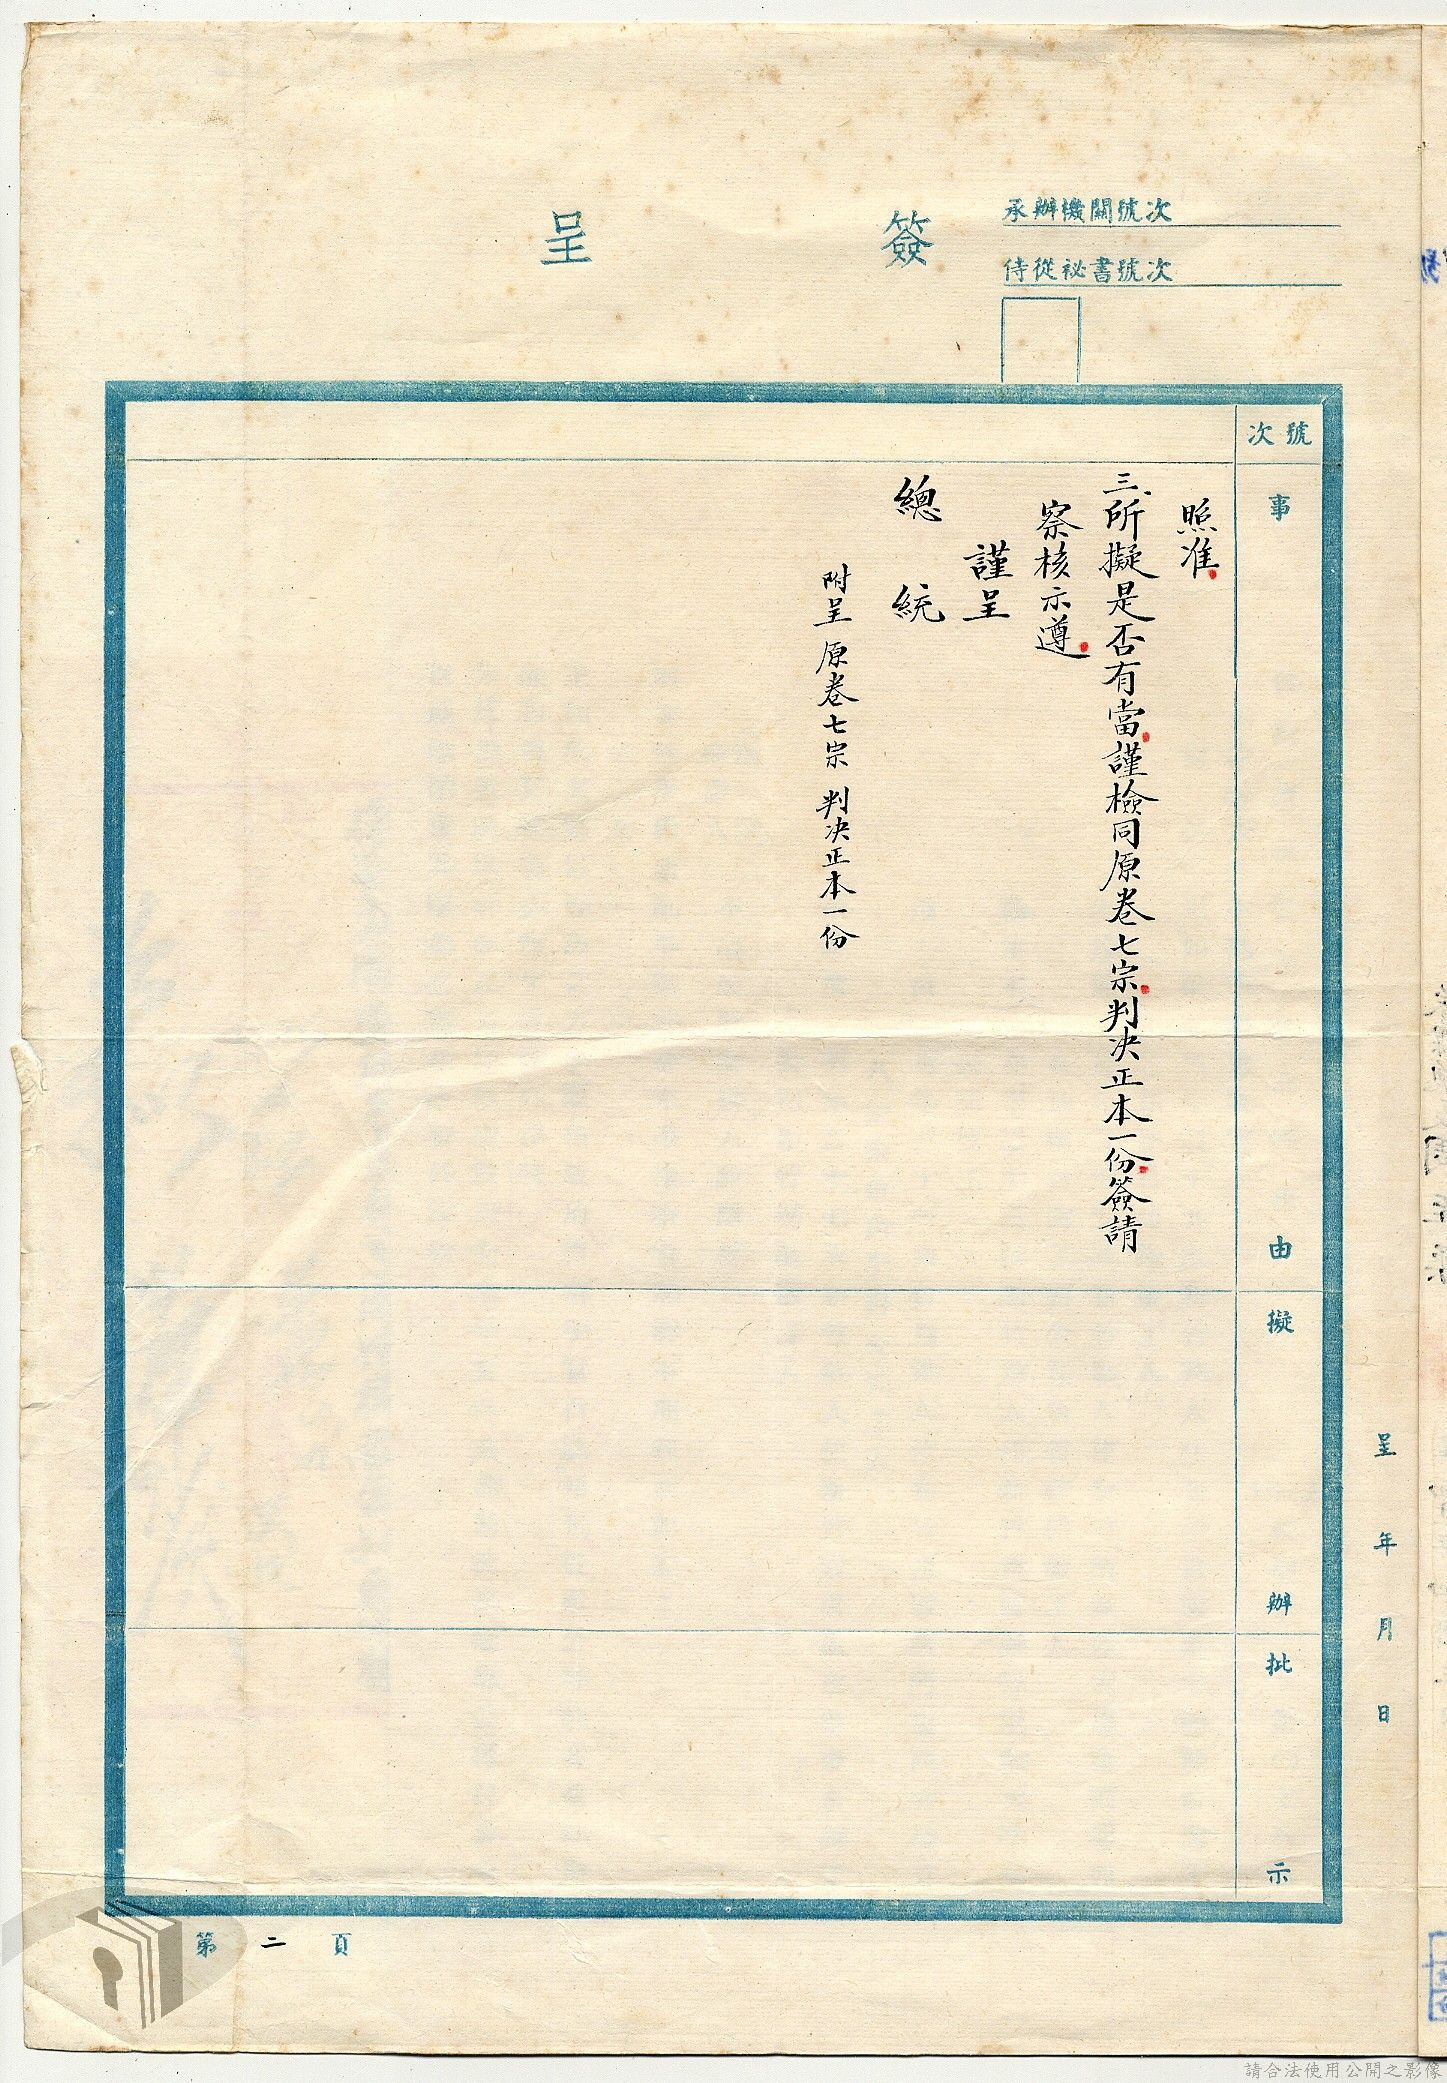 簽呈
承辦機關號次
侍從祕書號次
號次
事由
擬辦
批示
照准。
三、所擬是否有當。謹檢同原卷七宗。判決正本一份。簽請
察核示遵。
謹呈
總統
附呈 原卷七宗 判決正本一份
呈 年 月 日
第二頁
請合法使用公開之影像